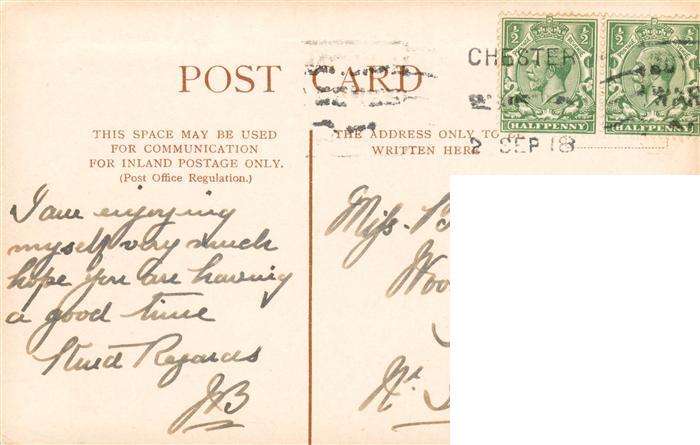 CHESTER
POST CARD
THIS SPACE MAY BE USED
FOR COMMUNICATION
FOR INLAND POSTAGE ONLY.
(Post Office Regulation.)
THE ADDRESS ONLY TO
WRITTEN HERE
½ ½
HALFPENNY HALFPENNY
2 SEP 18
I am enjoying
myself very much
hope you are having
a good time
Kind Regards
JB
Miss. B
Woo
Nr.